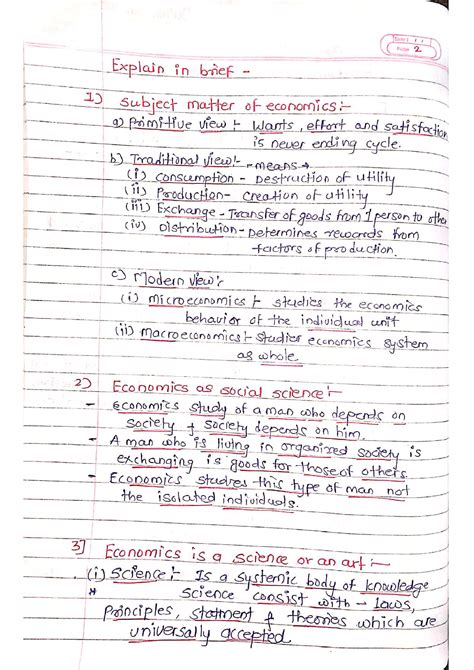 Page 2
Explain in brief -
1) Subject matter of economics:-
a) Primitive view :- Wants, effort and satisfaction
is never ending cycle.
b) Traditional view :- means →
(i) consumption - Destruction of utility
(ii) Production - creation of utility
(iii) Exchange - Transfer of goods from 1 person to other
(iv) Distribution - Determines rewards from
factors of production.
c) Modern view :-
(i) microeconomics :- studies the economics
behavior of the individual unit
(ii) macroeconomics :- studies economics system
as whole.
2) Economics as social science :-
- Economics study of a man who depends on
society & society depends on him.
- A man who is living in organized society is
exchanging is goods for those of others.
- Economics studies this type of man not
the isolated individuals.
3] Economics is a science or an art :-
(i) Science :- Is a systemic body of knowledge
* science consist with - laws,
principles, statment & theories which are
universally accepted.